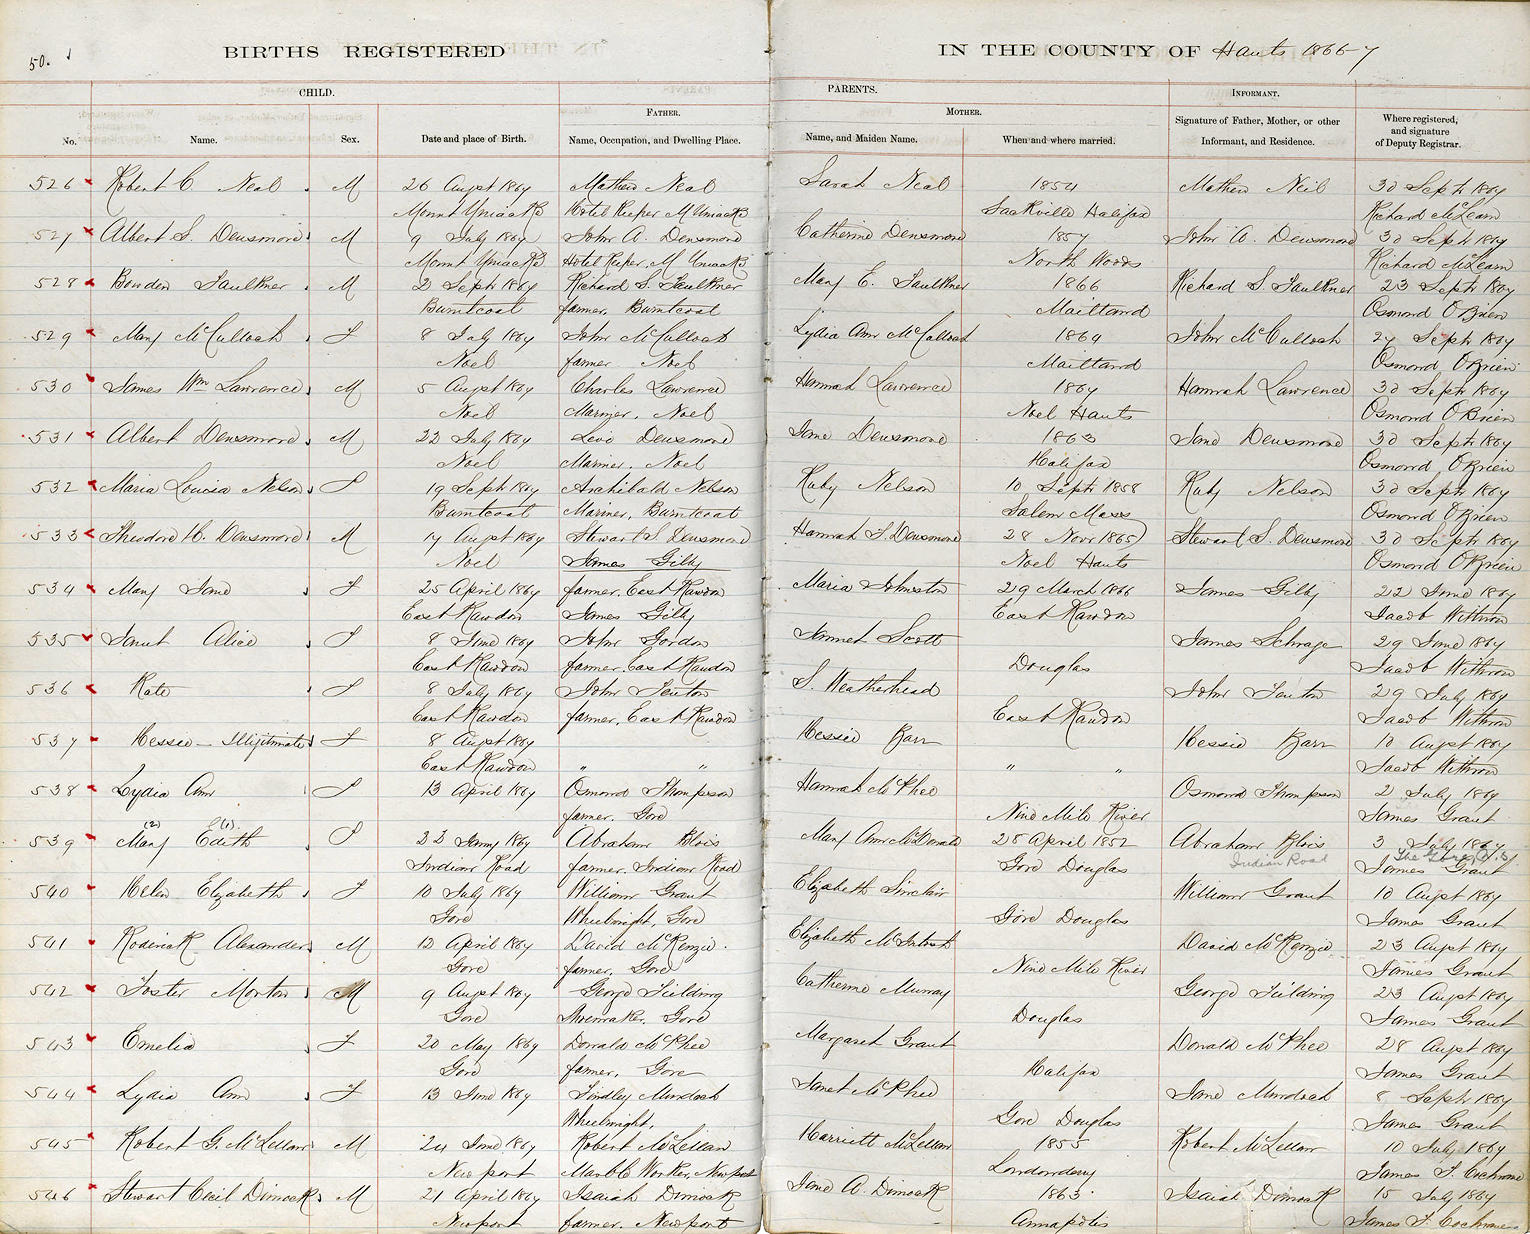 50.
BIRTHS REGISTERED IN THE COUNTY OF Hants 1866-7
CHILD. PARENTS. INFORMANT.
FATHER. MOTHER.
No. Name. Sex. Date and place of Birth. Name, Occupation, and Dwelling Place. Name, and Maiden Name. When and where married. Signature of Father, Mother, or other Informant, and Residence. Where registered, and signature of Deputy Registrar.
526 Robert C Neal M 26 Augst 1867 Mathew Neal Sarah Neal 1854 Mathew Neil 30 Sept 1867
Mount Uniacke Hotel Keeper M Uniacke Sackville Halifax Richard McLearn
527 Albert S. Densmore M 9 July 1867 John A. Densmore Catherine Densmore 1857 John A. Densmore 30 Sept 1867
Mount Uniacke Hotel Keeper, M Uniacke North Woods Richard McLearn
528 Bowden Faulkner M 2 Sept 1867 Richard S. Faulkner Mary E. Faulkner 1866 Richard S. Faulkner 23 Sept 1867
Burntcoat farmer, Burntcoat Maitland Osmond O'Brien
529 Mary McCulloch F 8 July 1867 John McCulloch Lydia Ann McCulloch 1864 John McCulloch 27 Sept 1867
Noel farmer Noel Maitland Osmond O'Brien
530 James Wm Lawrence M 5 Augst 1867 Charles Lawrence Hannah Lawrence 1867 Hannah Lawrence 30 Sept 1867
Noel Mariner, Noel Noel Hants Osmond O'Brien
531 Albert Densmore M 22 July 1867 Levi Densmore Jane Densmore 1863 Jane Densmore 30 Sept 1867
Noel Mariner, Noel Halifax Osmond O'Brien
532 Maria Louisa Nelson F 19 Sept 1867 Archibald Nelson Ruby Nelson 10 Sept 1858 Ruby Nelson 30 Sept 1867
Burntcoat Mariner, Burntcoat Salem Mass Osmond O'Brien
533 Theodore H. Densmore M 17 Augst 1867 Stewart S Densmore Hannah S. Densmore 28 Novr 1865 Stewart S. Densmore 30 Sept 1867
Noel James Gilby Noel Hants Osmond O'Brien
534 Mary Jane F 25 April 1867 farmer, East Rawdon Maria Johnston 29 March 1866 James Gilby 22 June 1867
East Rawdon James Gilby East Rawdon Jacob Withrow
535 Janet Alice F 8 June 1867 John Gordon Jennet Scott James Schrage 29 June 1867
East Rawdon farmer, East Rawdon Douglas Jacob Withrow
536 Kate F 8 July 1867 John Fenton S. Weatherhead John Fenton 29 July 1867
East Rawdon farmer, East Rawdon East Rawdon Jacob Withrow
537 Hessie - Illigitimate F 8 Augst 1867 Hessie Barr Hessie Barr 10 Augst 1867
East Rawdon " " " " Jacob Withrow
538 Lydia Ann F 13 April 1867 Osmond Thompson Hannah McPhee Osmond Thompson 2 July 1867
farmer, Gore Nine Mile River James Grant
(2) (1)
539 Mary Edith F 22 Jany 1867 Abraham Blois Mary Ann McDonald 28 April 1852 Abraham Blois 3 July 1867
Indian Road farmer, Indian Road Gore Douglas Indian Road The Gore N.S. James Grant
540 Helen Elizabeth F 10 July 1867 William Grant Elizabeth Sinclair William Grant 10 Augst 1867
Gore Wheelwright, Gore Gore Douglas James Grant
541 Roderick Alexander M 12 April 1867 David McKenzie Elizabeth McIntosh David McKenzie 23 Augst 1867
Gore farmer, Gore Nine Mile River James Grant
542 Foster Morton M 9 Augst 1867 George Fielding Catherine Murray George Fielding 23 Augst 1867
Gore Shoemaker, Gore Douglas James Grant
543 Emelia F 20 May 1867 Donald McPhee Margaret Grant Donald McPhee 28 Augst 1867
Gore farmer, Gore Halifax James Grant
544 Lydia Ann F 13 June 1867 Findley Murdoch Janet McPhee Jane Murdoch 8 Sept 1867
Wheelwright, Gore Douglas James Grant
545 Robert G. McLellan M 24 June 1867 Robert McLellan Harriett McLellan 1855 Robert McLellan 10 July 1867
Newport Marble Worker Newport Londonderry James F. Cochrane
546 Stewart Cecil Dimock M 21 April 1867 Isaiah Dimock Jane A. Dimock 1863 Isaiah Dimock 15 July 1867
Newport farmer, Newport Annapolis James F. Cochrane